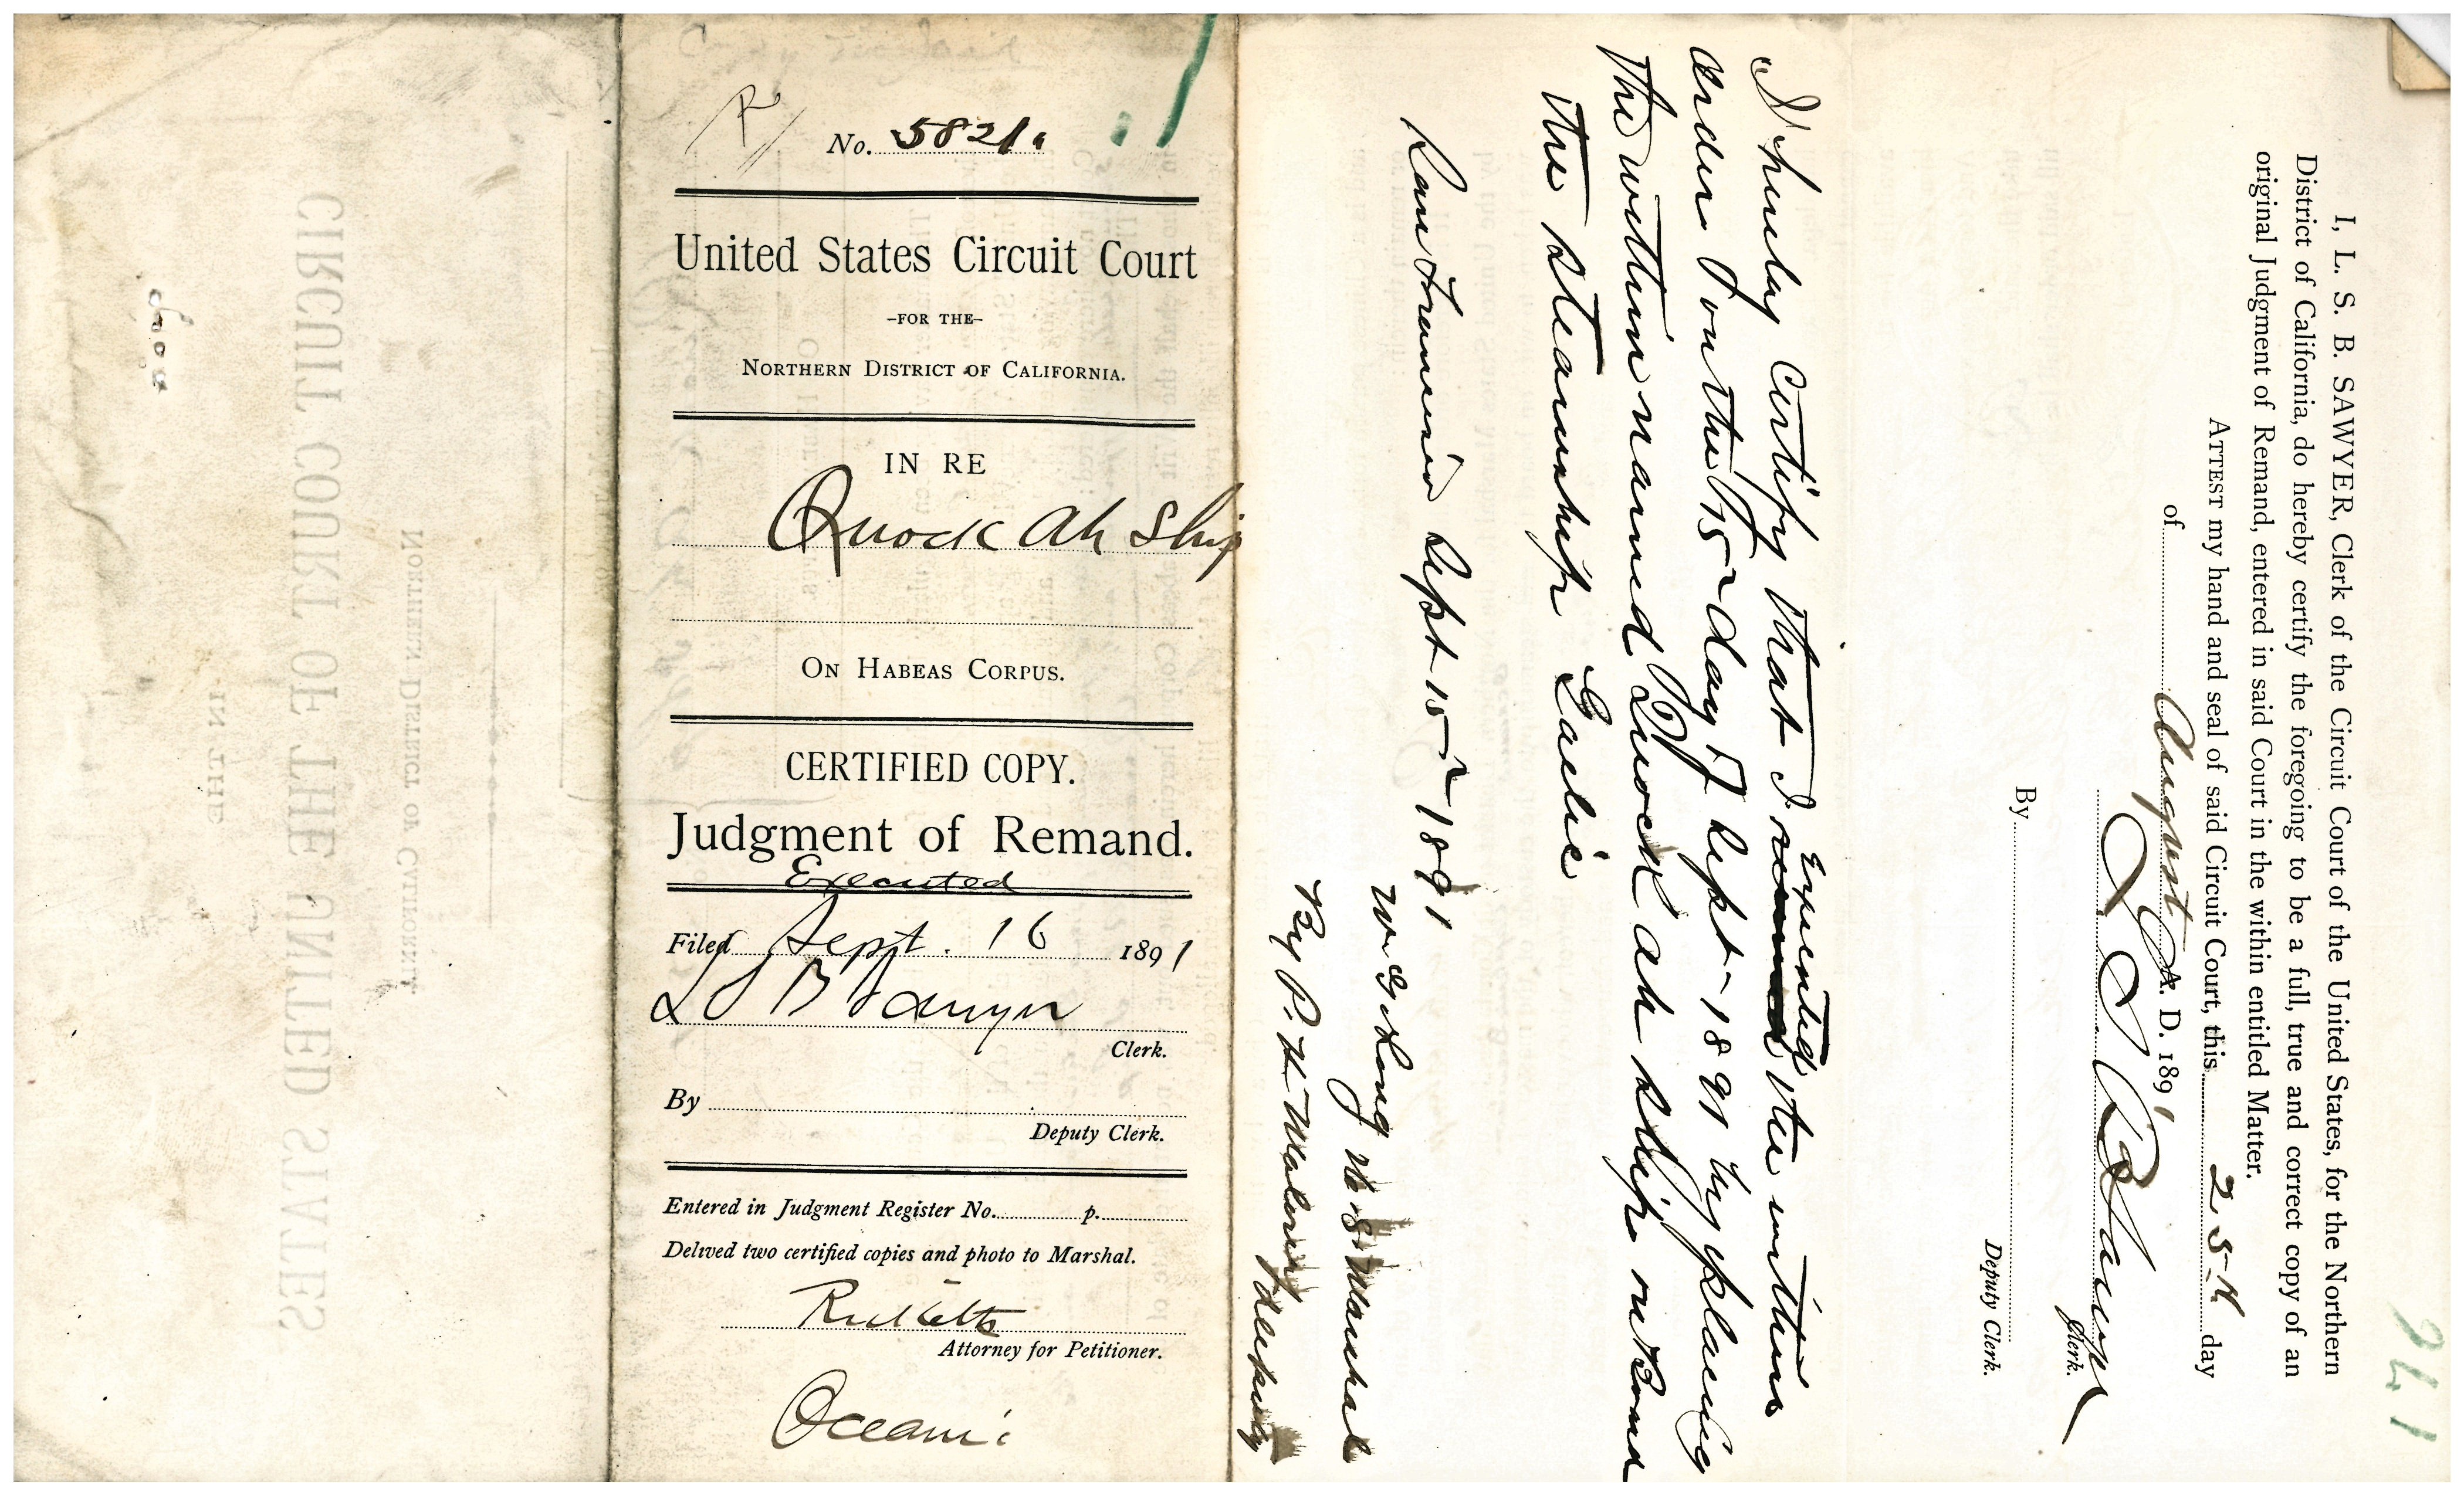 R
No. 5821.
United States Circuit Court
-FOR THE-
NORTHERN DISTRICT OF CALIFORNIA.
IN RE
Quock Ah Ship
ON HABEAS CORPUS.
CERTIFIED COPY.
Judgment of Remand.
Executed
Filed Sept. 16 1891
L S B Sawyer
Clerk.
By
Deputy Clerk.
Entered in Judgment Register No. p.
Delived two certified copies and photo to Marshal.
Ricketts
Attorney for Petitioner.
Oceanic
I hereby Certify that I Executed the within
order on the 15 day of Sept 1891 by placing
the within named Quock ah ship on Board
the steamship Gaelic
San Francisco Sept 15 1891
W G Long U S Marshal
By P. H Maloney deputy
I, L. S. B. SAWYER, Clerk of the Circuit Court of the United States, for the Northern
District of California, do hereby certify the foregoing to be a full, true and correct copy of an
original Judgment of Remand, entered in said Court in the within entitled Matter.
ATTEST my hand and seal of said Circuit Court, this 25th day
of August A. D. 1891
L S B Sawyer
Clerk.
By
Deputy Clerk.
IN THE
CIRCUIT COURT OF THE UNITED STATES
NORTHERN DISTRICT OF CALIFORNIA.